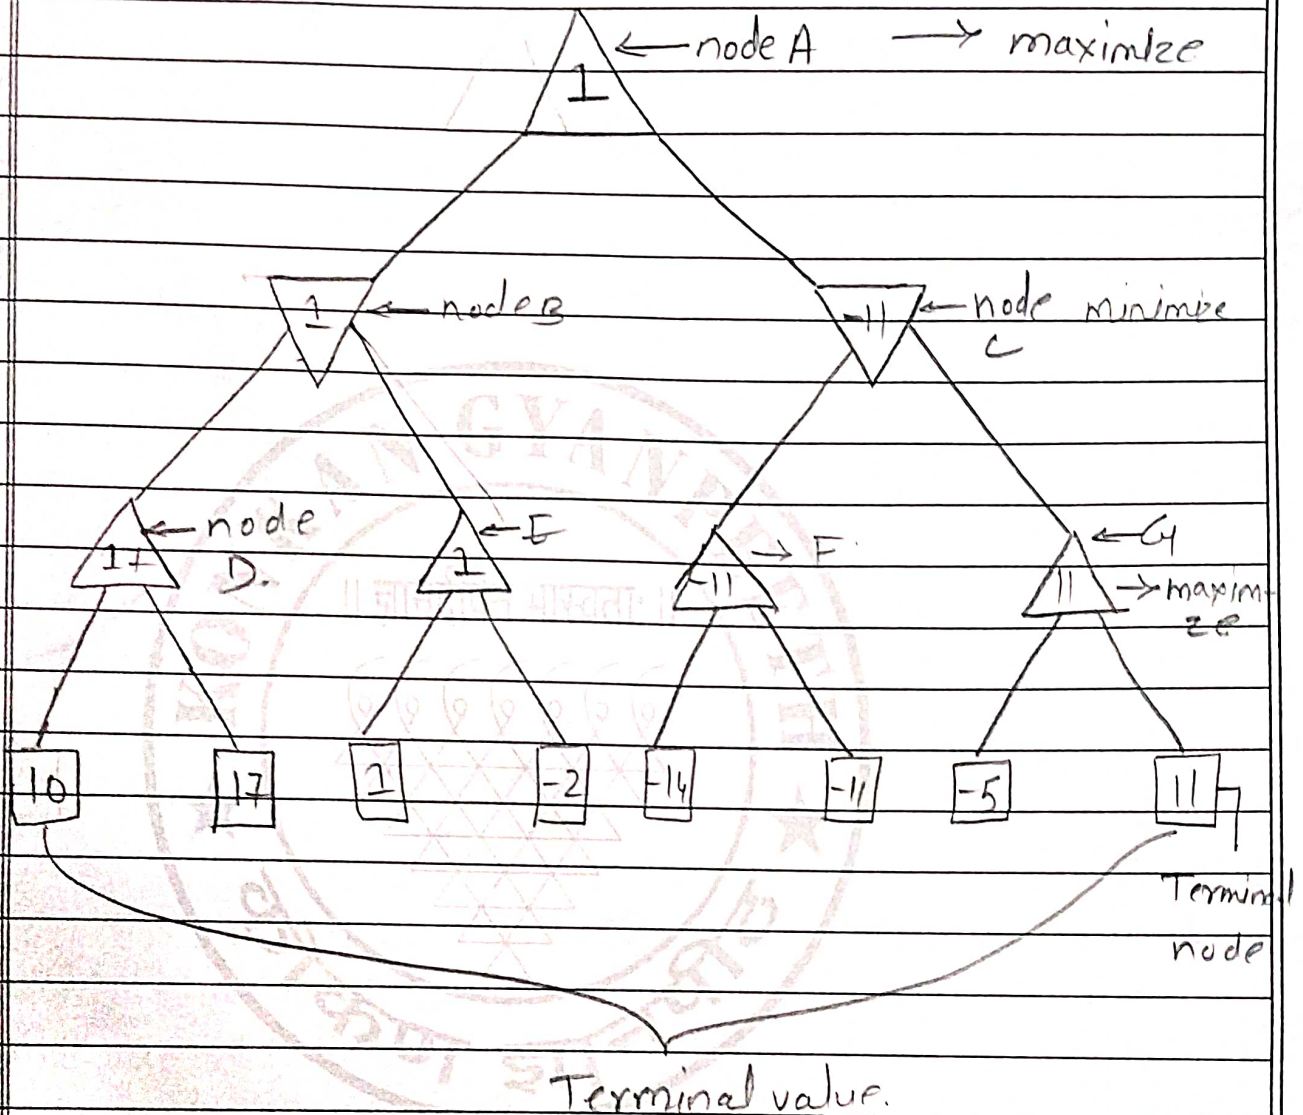 ← node A → maximize
1
1 ← node B
-11 ← node minimize
C
17 ← node
D.
1 ← E
-11 → F
11 ← G
→ maxim-
ze
10 17 1 -2 -14 -11 -5 11
Terminal
node
Terminal value.